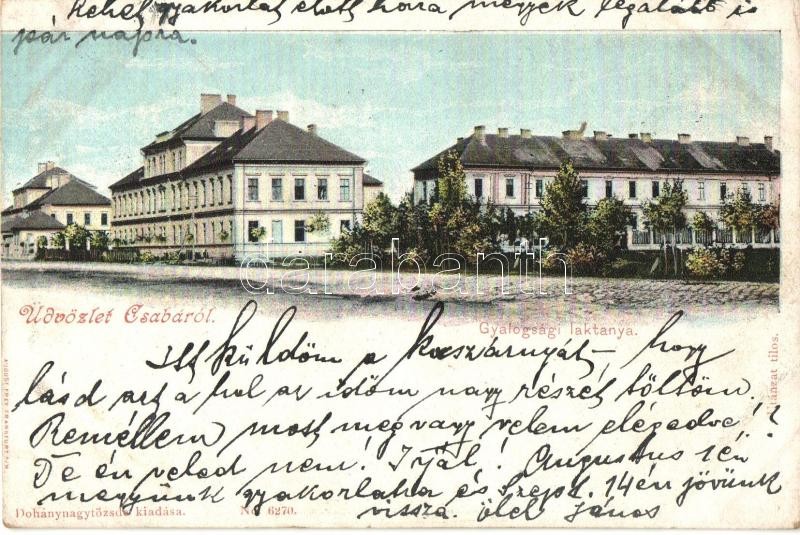 Kehet gyakorlat előtt hóra megyek legalább is
pár napra.
darabanth
Üdvözlet Csabáról.
Gyalogsági laktanya.
Itt küldöm a kaszárnyát, hogy
lásd azt a hol az időm nagy részét töltöm.
Remélem most meg vagy velem elégedve!?
De én veled nem! Írjál! Augustus 1én
megyünk gyakorlatra és Szept. 14én jövünk
vissza. ölel János
Dohánynagytőzsde kiadása.
No. 6270.
utánzat tilos.